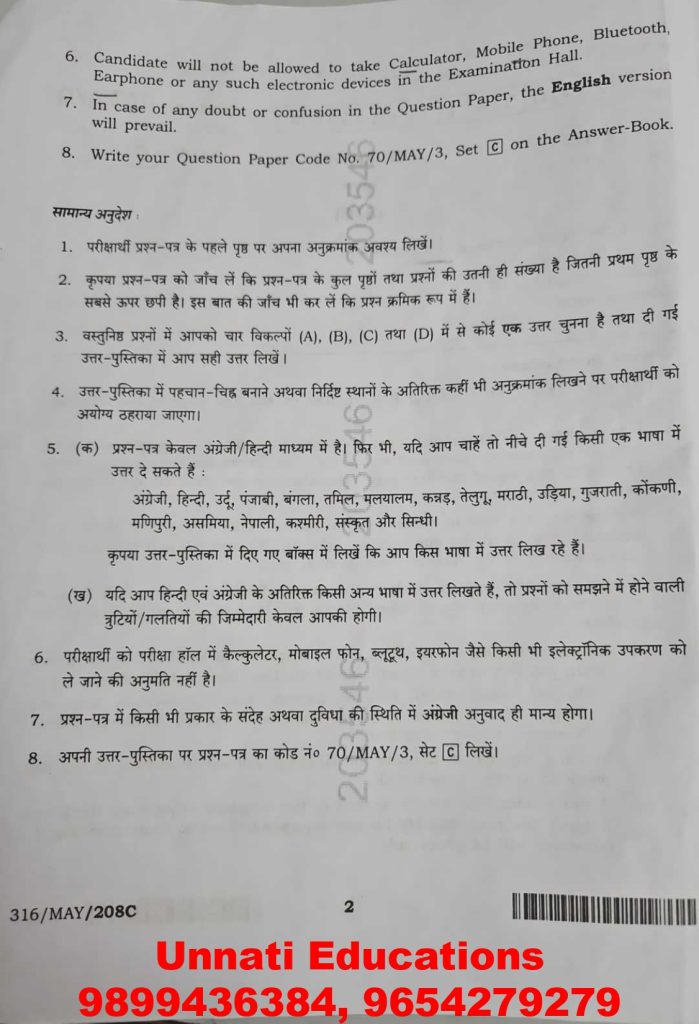 6. Candidate will not be allowed to take Calculator, Mobile Phone, Bluetooth,
Earphone or any such electronic devices in the Examination Hall.
7. In case of any doubt or confusion in the Question Paper, the English version
will prevail.
8. Write your Question Paper Code No. 70/MAY/3, Set C on the Answer-Book.
सामान्य अनुदेश :
1. परीक्षार्थी प्रश्न-पत्र के पहले पृष्ठ पर अपना अनुक्रमांक अवश्य लिखें।
2. कृपया प्रश्न-पत्र को जाँच लें कि प्रश्न-पत्र के कुल पृष्ठों तथा प्रश्नों की उतनी ही संख्या है जितनी प्रथम पृष्ठ के
सबसे ऊपर छपी है। इस बात की जाँच भी कर लें कि प्रश्न क्रमिक रूप में हैं।
3. वस्तुनिष्ठ प्रश्नों में आपको चार विकल्पों (A), (B), (C) तथा (D) में से कोई एक उत्तर चुनना है तथा दी गई
उत्तर-पुस्तिका में आप सही उत्तर लिखें।
4. उत्तर-पुस्तिका में पहचान-चिह्न बनाने अथवा निर्दिष्ट स्थानों के अतिरिक्त कहीं भी अनुक्रमांक लिखने पर परीक्षार्थी को
अयोग्य ठहराया जाएगा।
5. (क) प्रश्न-पत्र केवल अंग्रेजी/हिन्दी माध्यम में है। फिर भी, यदि आप चाहें तो नीचे दी गई किसी एक भाषा में
उत्तर दे सकते हैं :
अंग्रेजी, हिन्दी, उर्दू, पंजाबी, बंगला, तमिल, मलयालम, कन्नड़, तेलुगू, मराठी, उड़िया, गुजराती, कोंकणी,
मणिपुरी, असमिया, नेपाली, कश्मीरी, संस्कृत और सिन्धी।
कृपया उत्तर-पुस्तिका में दिए गए बॉक्स में लिखें कि आप किस भाषा में उत्तर लिख रहे हैं।
(ख) यदि आप हिन्दी एवं अंग्रेजी के अतिरिक्त किसी अन्य भाषा में उत्तर लिखते हैं, तो प्रश्नों को समझने में होने वाली
त्रुटियों/गलतियों की जिम्मेदारी केवल आपकी होगी।
6. परीक्षार्थी को परीक्षा हॉल में कैल्कुलेटर, मोबाइल फोन, ब्लूटूथ, इयरफोन जैसे किसी भी इलेक्ट्रॉनिक उपकरण को
ले जाने की अनुमति नहीं है।
7. प्रश्न-पत्र में किसी भी प्रकार के संदेह अथवा दुविधा की स्थिति में अंग्रेजी अनुवाद ही मान्य होगा।
8. अपनी उत्तर-पुस्तिका पर प्रश्न-पत्र का कोड नं० 70/MAY/3, सेट C लिखें।
203546
203546
203546
316/MAY/208C
2
Unnati Educations
9899436384, 9654279279